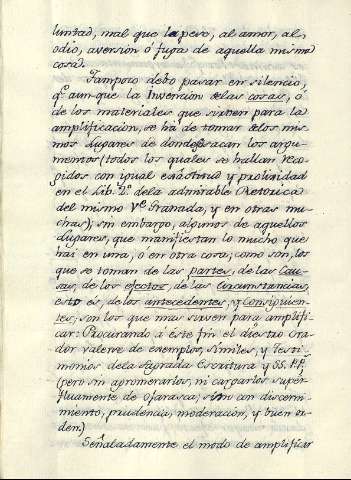 luntad, mal que le pese, al amor, al
odio, aversión ó fuga de aquella misma
cosa.
Tampoco debo pasar en silencio,
q.e aunque la Invención de las cosas, ó
de los materiales que sirven para la
amplificación, se há de tomar de los mis-
mos Lugares de donde se sacan los argu-
mentos (todos los quales se hallan reco-
gidos con igual exáctitud y prolixidad
en el Lib. 2.º de la admirable Retorica
del mismo V.e Granada, y en otras mu-
chas); sin embargo, algunos de aquellos
Lugares, que manifiestan lo mucho que
hai en una, ó en otra cosa; como son, los
que se toman de las partes, de las Cau-
sas, de los efectos, de las Circunstancias,
esto es, de los antecedentes, y Consiguien-
tes, son los que mas sirven para amplifi-
car: Procurando á este fin el diestro Ora-
dor valerse de exemplos, símiles, y Testi-
monios de la Sagrada Escritura y SS. PP.
(pero sin aglomerarlos, ni cargarlos super-
fluamente de ojarasca; sino con discerni-
miento, prudencia, moderación, y buen or-
den.)
Señaladamente el modo de amplificar